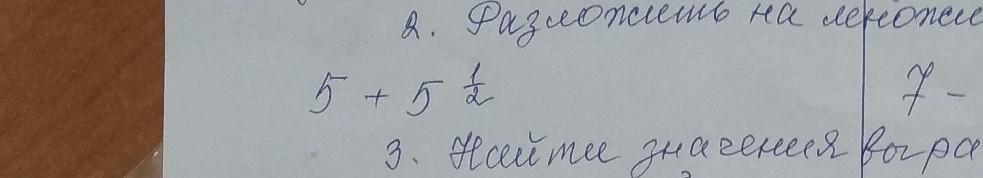 2. Разложить на множи
5 + 5 1/2 7 -
3. Найти значения выра